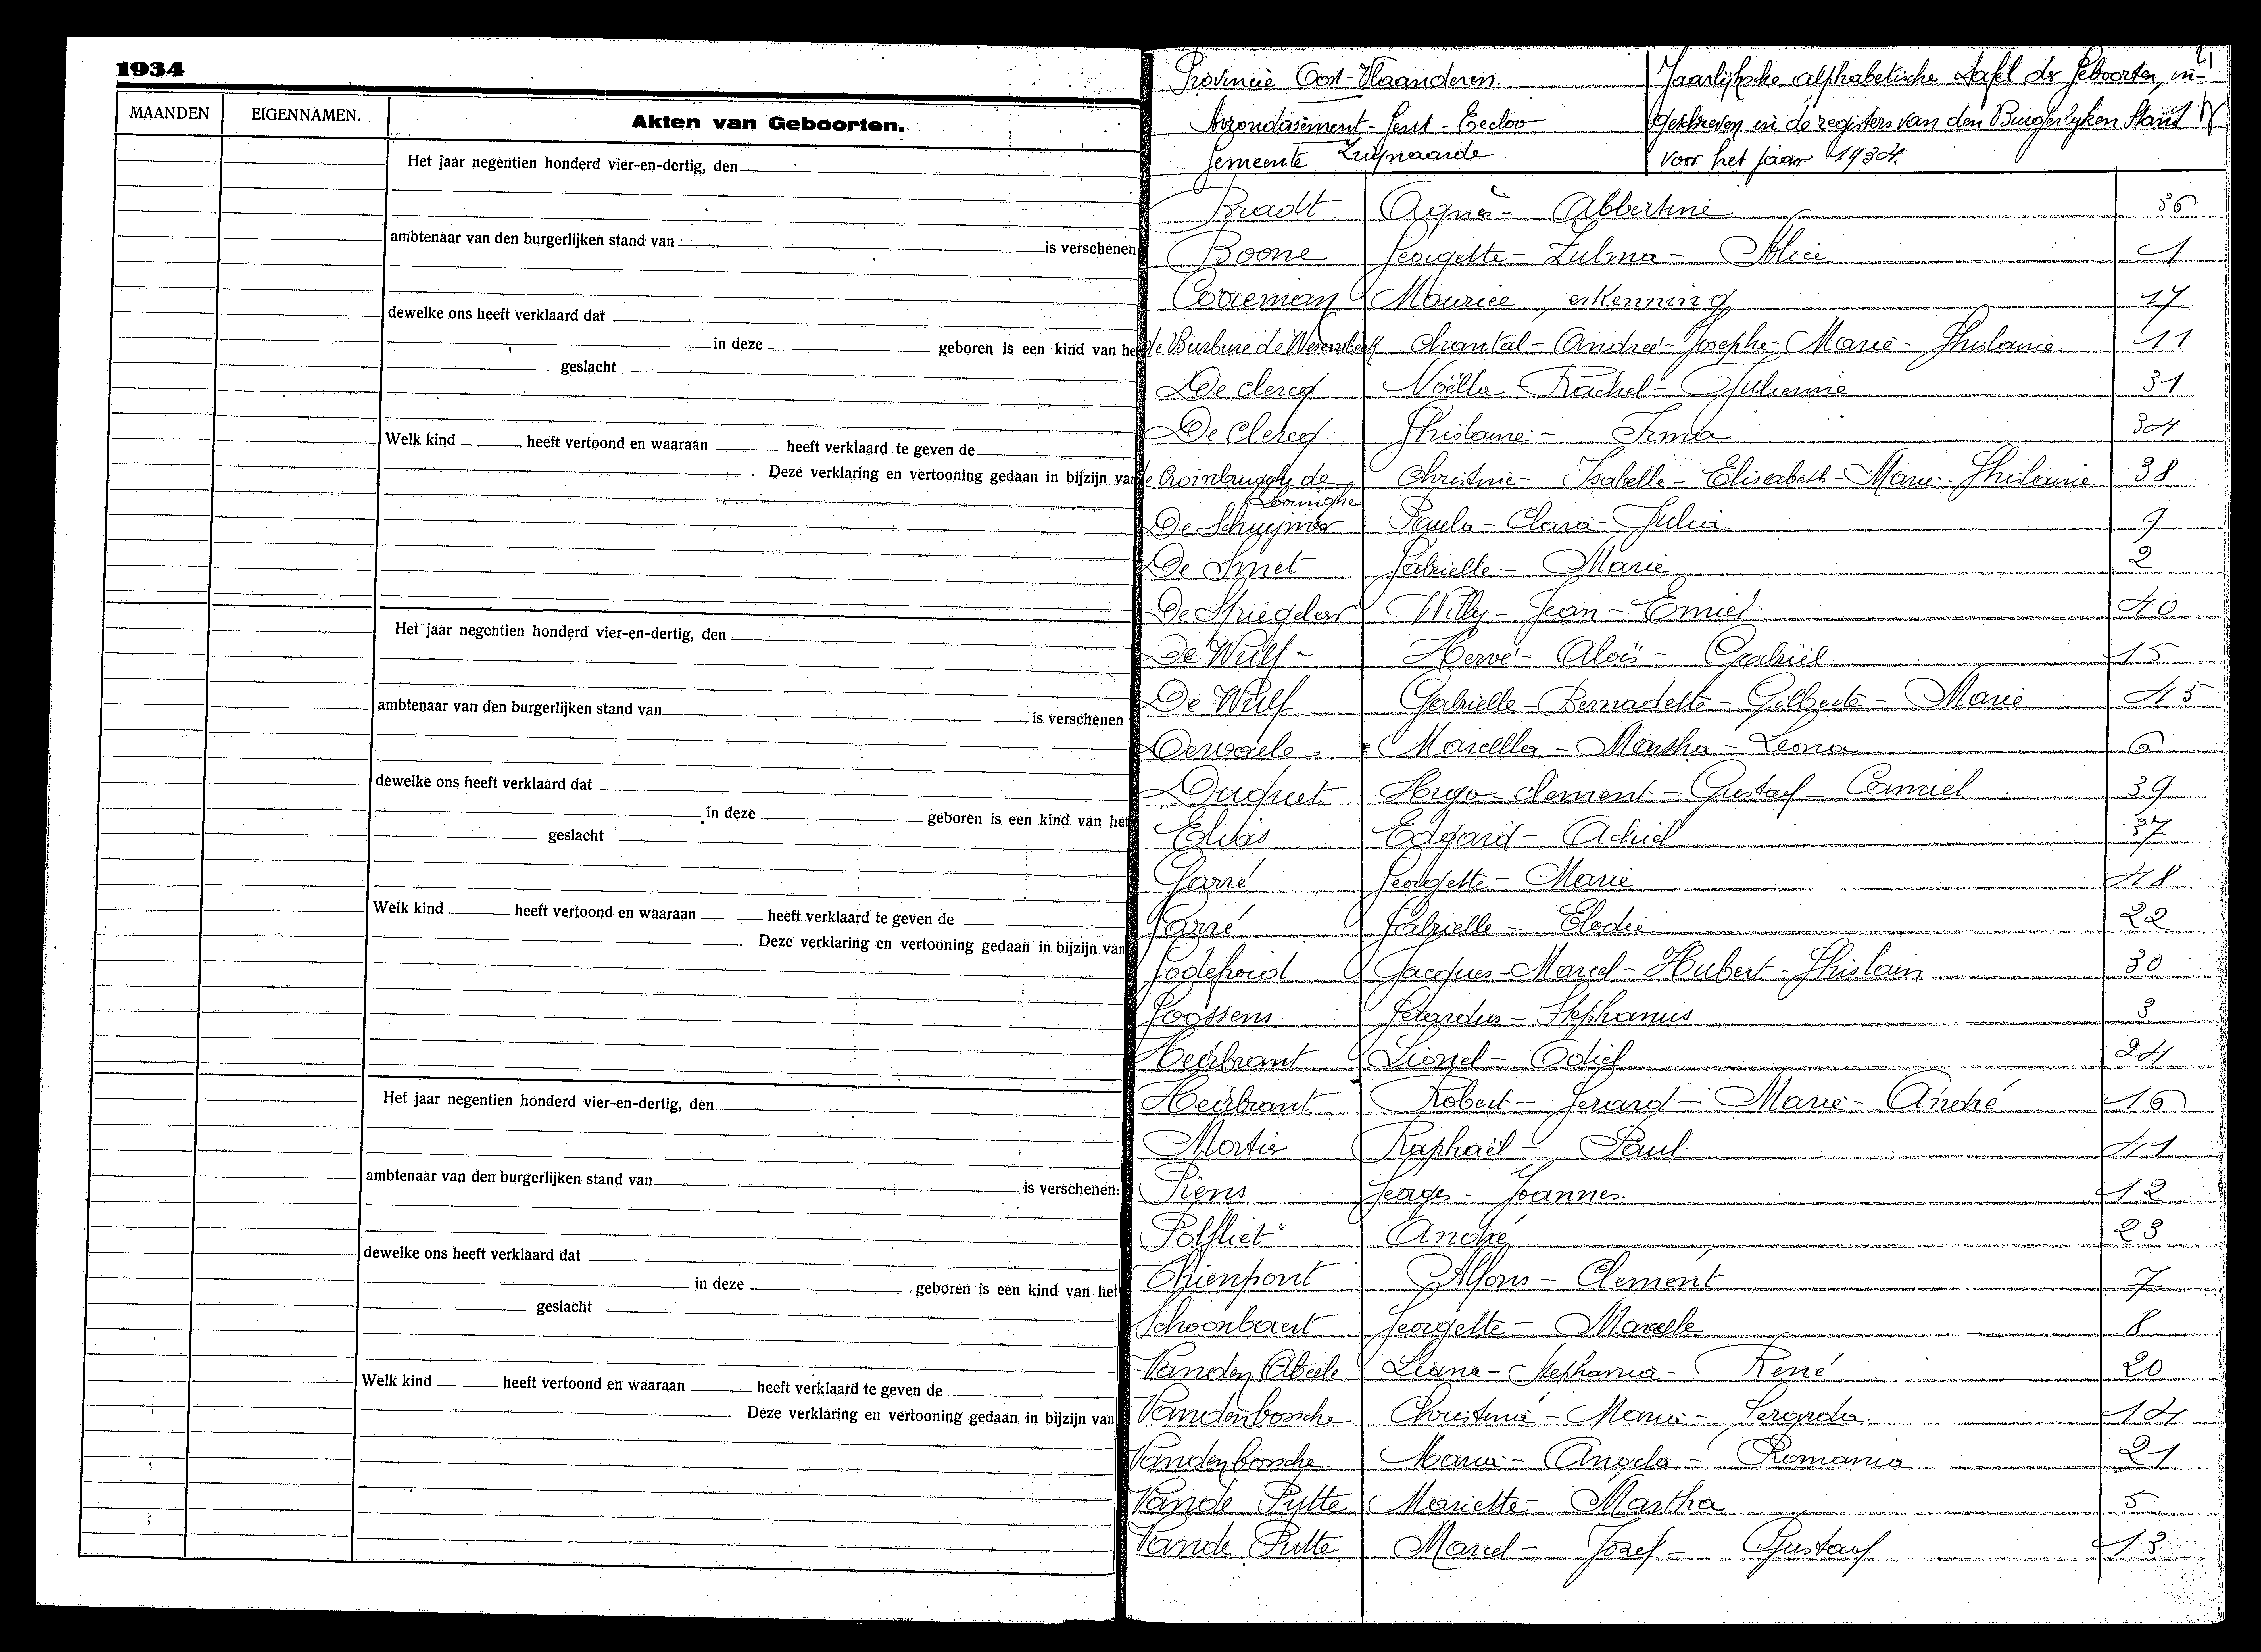 1934
MAANDEN EIGENNAMEN. Akten van Geboorten.
Het jaar negentien honderd vier-en-dertig, den
ambtenaar van den burgerlijken stand van is verschenen
dewelke ons heeft verklaard dat
in deze geboren is een kind van het
geslacht
Welk kind heeft vertoond en waaraan heeft verklaard te geven de
Deze verklaring en vertooning gedaan in bijzijn van
Het jaar negentien honderd vier-en-dertig, den
ambtenaar van den burgerlijken stand van is verschenen
dewelke ons heeft verklaard dat
in deze geboren is een kind van het
geslacht
Welk kind heeft vertoond en waaraan heeft verklaard te geven de
Deze verklaring en vertooning gedaan in bijzijn van
Het jaar negentien honderd vier-en-dertig, den
ambtenaar van den burgerlijken stand van is verschenen
dewelke ons heeft verklaard dat
in deze geboren is een kind van het
geslacht
Welk kind heeft vertoond en waaraan heeft verklaard te geven de
Deze verklaring en vertooning gedaan in bijzijn van
21
Provincie Oost-Vlaanderen.
Arrondissement - Gent - Eecloo
Gemeente Zwijnaarde
Jaarlijksche alphabetische tafel der Geboorten, in-
geschreven in de registers van den Burgerlyken Stand
voor het jaar 1934.
Bradt Agnès - Albertine 36
Boone Georgette - Zulma - Alice 1
Cooreman Maurice, erkenning 17
de Burbure de Wesembeek Chantal - Andrée - Josephe - Marie - Ghislaine 11
De clercq Noëlla - Rachel - Julienne 31
De Clercq Ghislaine - Irma 34
de Crombrugghe de Looringhe Christine - Isabelle - Elisabeth - Marie - Ghislaine 38
De Schuymer Paula - Clara - Julia 9
De Smet Gabrielle - Marie 2
De Spiegeleer Willy - Jean - Emiel 40
De Wulf - Hervé - Aloïs - Gabriël 15
De Wulf Gabrielle - Bernadette - Gilberte - Marie 45
Dewaele - Marcella - Martha - Leona 6
Duquet Hugo - Clement - Gustaaf - Camiel 39
Elias Edgard - Achiel 37
Garré Georgette - Marie 48
Garré Gabrielle - Elodie 22
Godefroid Jacques - Marcel - Hubert - Ghislain 30
Goossens Gerardus - Stephanus 3
Heirbrant Lionel - Odief 24
Heirbrant Robert - Gerard - Marie - André 16
Mortier Raphaël - Paul 41
Piens Georges - Joannes. 12
Polfliet André 23
Rijenpont Alfons - Clement 7
Schoonbaert Georgette - Marcelle 8
Vanden Abeele Liana - Stephania - René 20
Vandenbossche Christina - Maria - Geranda 14
Vandenbossche Maria - Angela - Romania 21
Vande Putte Mariette - Martha 5
Vande Putte Marcel - Jozef - Gustaaf 13